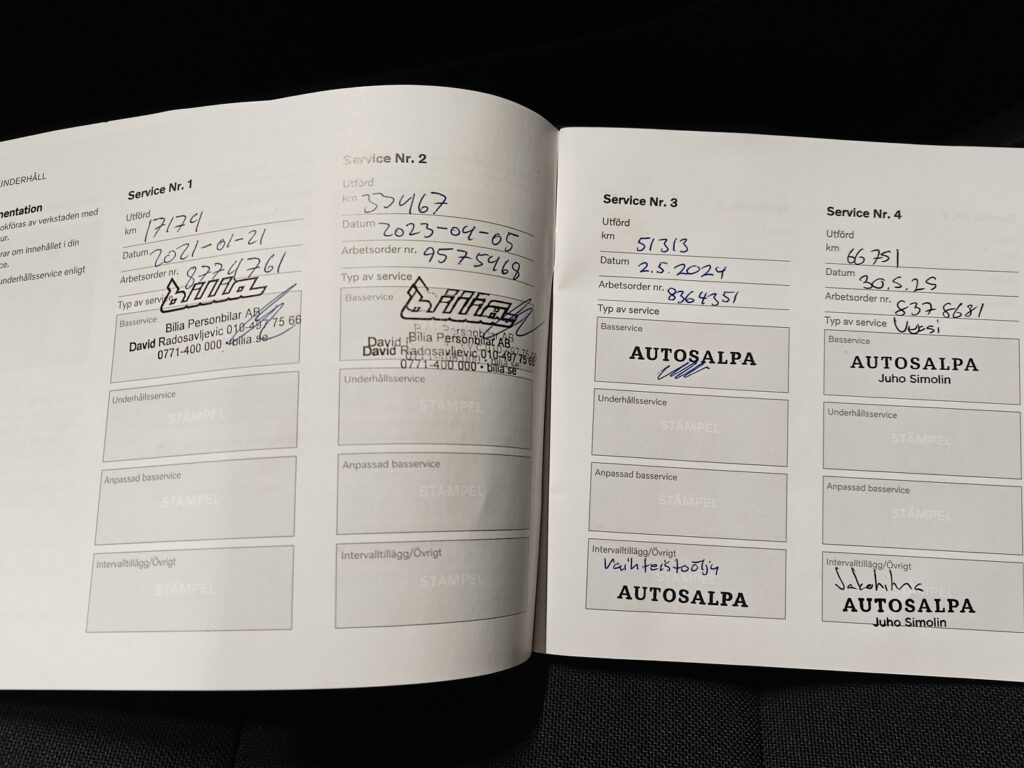 UNDERHÅLL
mentation
okföras av verkstaden med
ur.
rar om innehållet i din
ce.
underhållsservice enligt
Service Nr. 1
Utförd
km 17174
Datum 2021-01-21
Arbetsorder nr. 8774761
Typ av service
Basservice
Bilia
Bilia Personbilar AB
David Radosavljevic 010-497 75 66
0771-400 000 • bilia.se
Underhållsservice
STÄMPEL
Anpassad basservice
STÄMPEL
Intervalltillägg/Övrigt
STÄMPEL
Service Nr. 2
Utförd
km 33467
Datum 2023-04-05
Arbetsorder nr. 9575468
Typ av service
Basservice
Bilia
Bilia Personbilar AB
David Radosavljevic 010-497 75 66
0771-400 000 • bilia.se
Underhållsservice
STÄMPEL
Anpassad basservice
STÄMPEL
Intervalltillägg/Övrigt
STÄMPEL
Service Nr. 3
Utförd
km 51313
Datum 2.5.2024
Arbetsorder nr. 8364351
Typ av service
Basservice
AUTOSALPA
Underhållsservice
STÄMPEL
Anpassad basservice
STÄMPEL
Intervalltillägg/Övrigt
Vaihteistoöljy
AUTOSALPA
Service Nr. 4
Utförd
km 66751
Datum 30.5.25
Arbetsorder nr. 8378681
Typ av service Vuosi
Basservice
AUTOSALPA
Juho Simolin
Underhållsservice
STÄMPEL
Anpassad basservice
STÄMPEL
Intervalltillägg/Övrigt
Jakohihna
AUTOSALPA
Juho Simolin